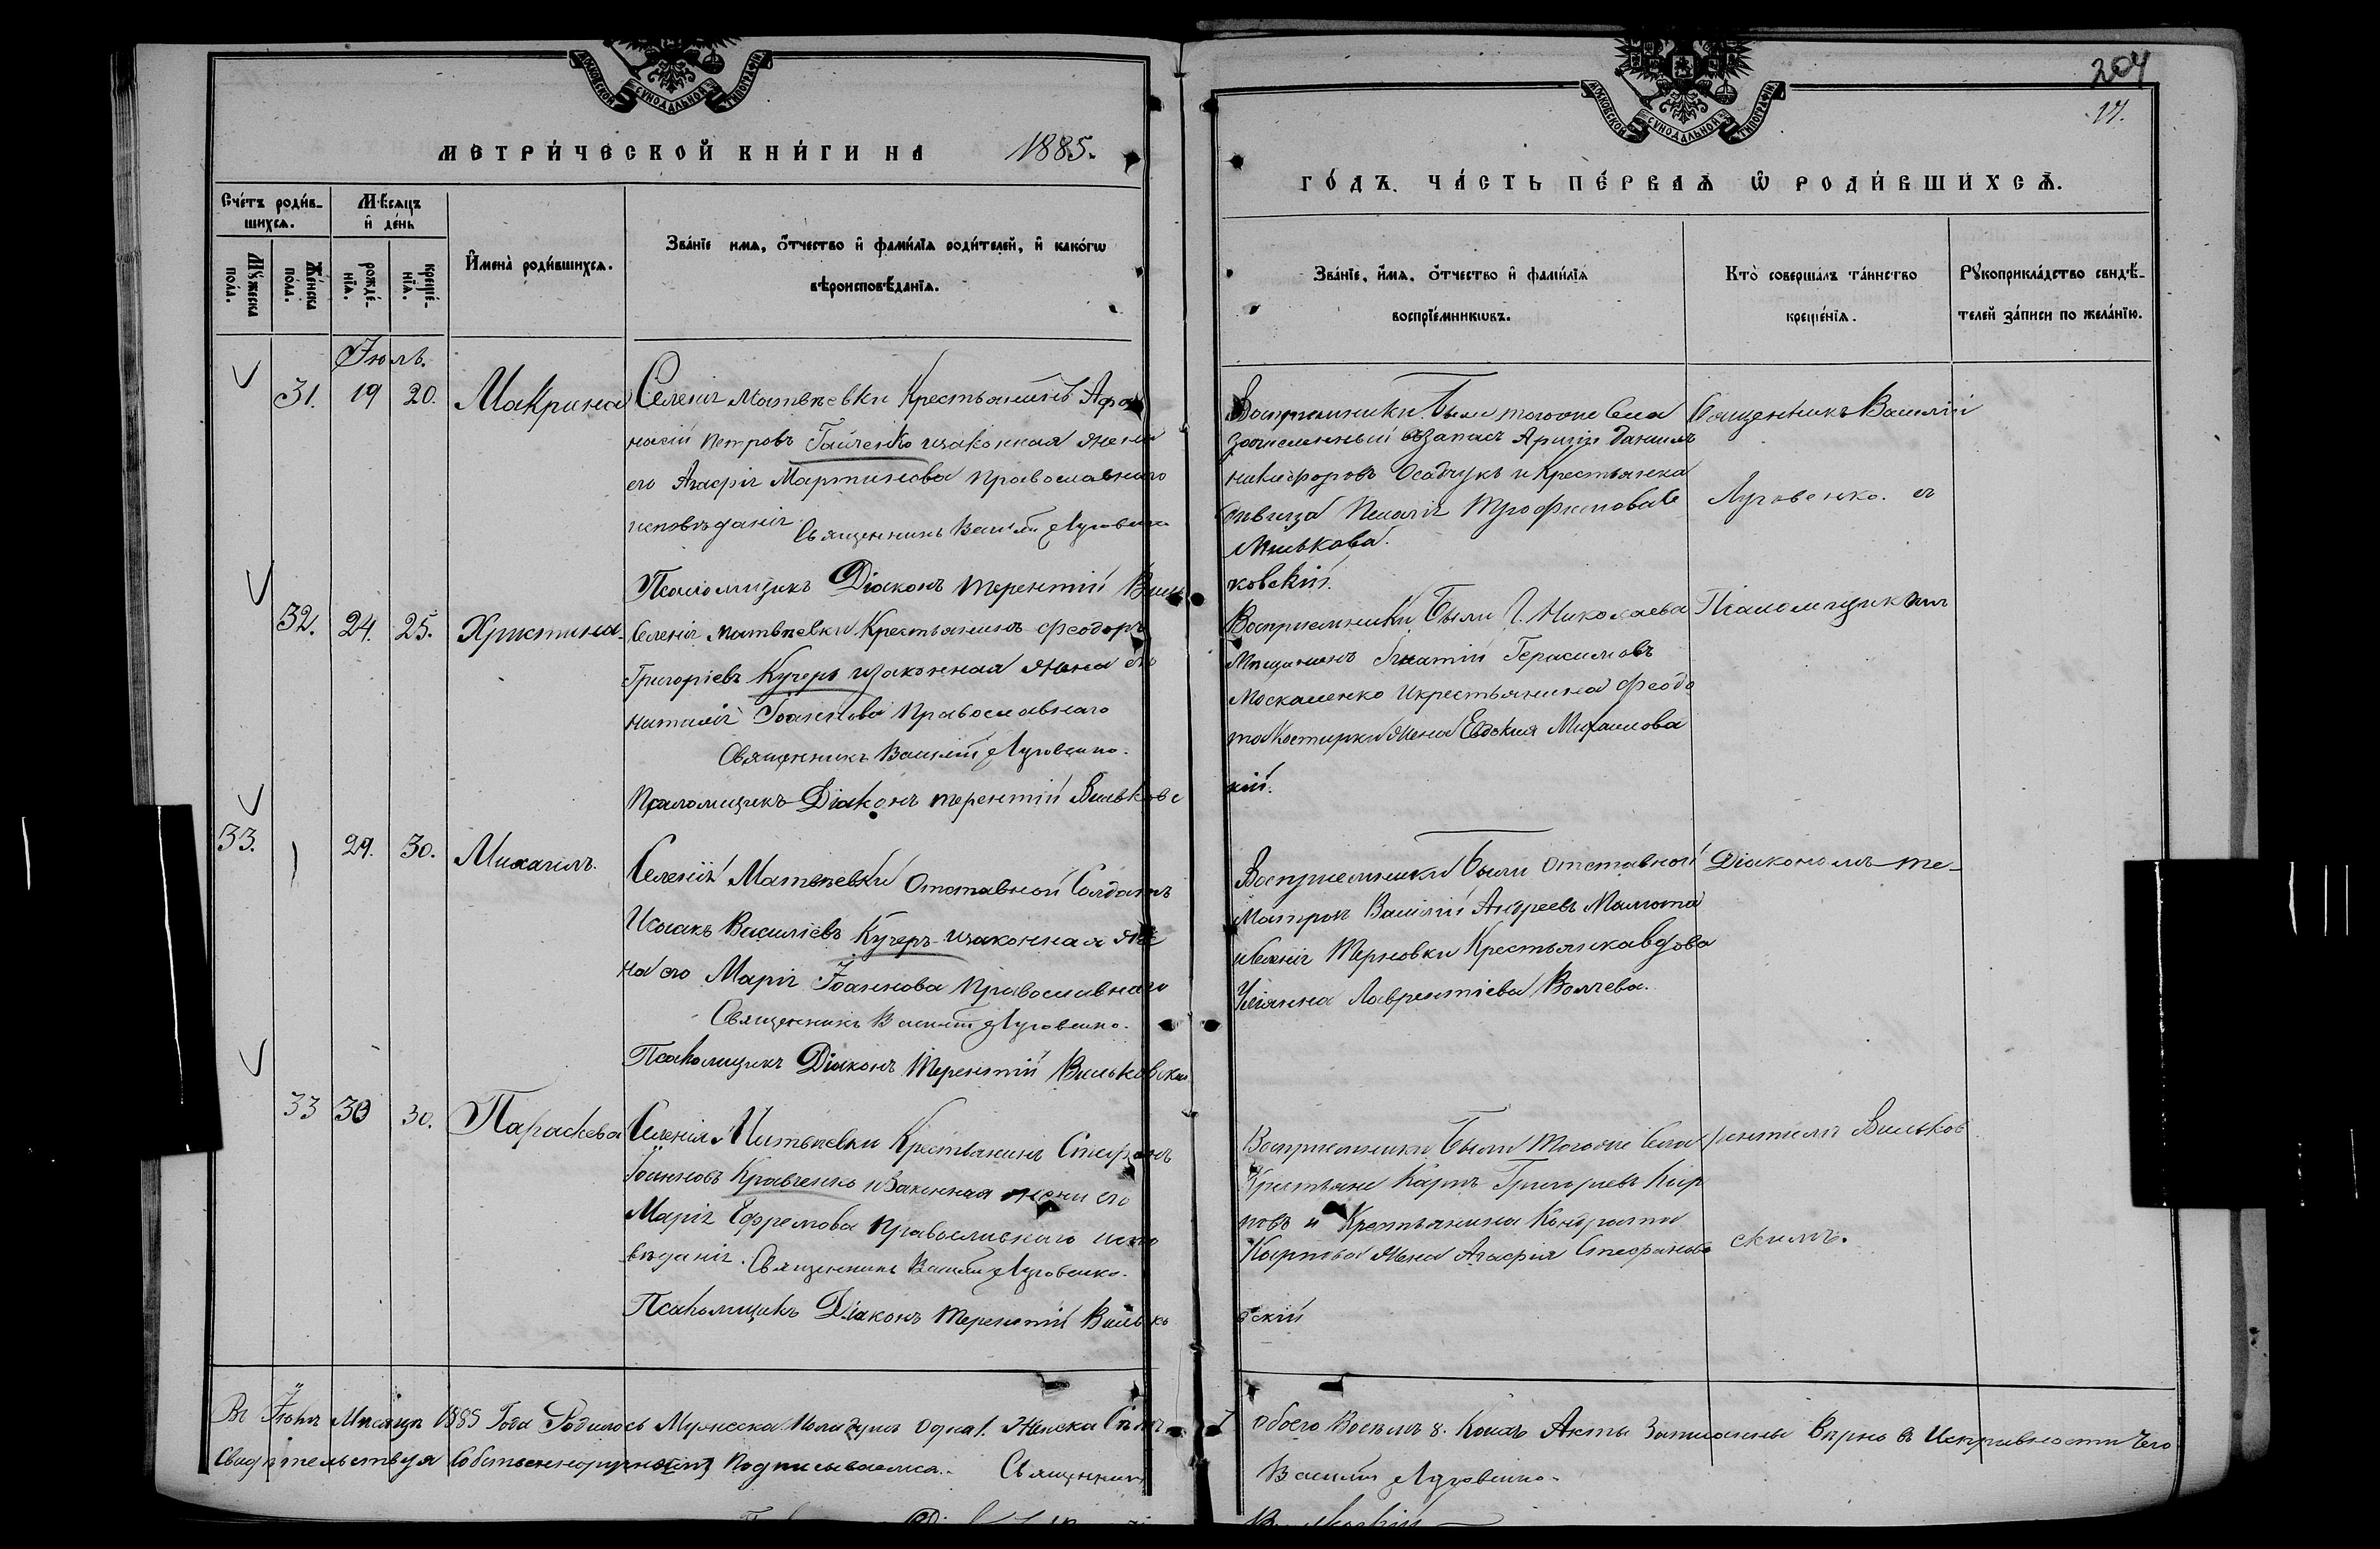 МОСКОВСКОЙ СУНОДАЛЬНОЙ ТИПОГРАФІИ
МЕТРИ́ЧЕСКОЙ КНИ́ГИ НА 1885.
Сче́тъ роди́в-
шихсѧ.
Мꙋ́жеска
пола.
Же́нска
пола.
Мѣ́сѧцъ
и҆ де́нь
рожде́-
нїѧ.
креще́-
нїѧ.
И҆мена̀ роди́вшихсѧ.
Зва́нїе имѧ, ѻ҆́тчество и҆ фами́лїѧ роди́телей, и҆ како́гѡ
вѣроисповѣ́данїѧ.
Іюль.
31. 19 20. Макрина
Селенія Матвѣевки Крестьянинъ Афа
насій Петровъ Гайченко изаконная жена
его Агафія Мартинова Православнаго
исповѣданія. Священникъ Василій Луговенко
Псаломщикъ Діаконъ Терентій Виль
32. 24. 25. Христина.
Селенія Матвѣевки Крестьянинъ Феодоръ
Григоріевъ Кучеръ изаконная жена его
Наталія Іоаннова Православнаго
Священникъ Василій Луговенко.
Псаломщикъ Діаконъ Терентій Вильковс
33. 29. 30. Михаилъ.
Селенія Матвѣевки Отставной Солдатъ
Исаакъ Василіевъ Кучеръ изаконная же
на его Марія Іоаннова Православнаго
Священникъ Василій Луговенко.
Псаломщикъ Діаконъ Терентій Вильковски
33 30 30. Параскева
Селенія Матвѣевки Крестьянинъ Стефанъ
Іоанновъ Кравченко изаконная жена его
Марія Ефремова Православнаго испо
вѣданія. Священникъ Василій Луговенко.
Псаломщикъ Діаконъ Терентій Вилько
Въ Іюлѣ Мѣсяцѣ 1885 Года Родилось Мужеска Пола душъ одна 1. Женска Семь
Свидѣтельствуя Собственноручно Подписываемся. Священникъ
МОСКОВСКОЙ СУНОДАЛЬНОЙ ТИПОГРАФІИ
204
17.
ГО́ДЪ. ЧА́СТЬ ПЕ́РВАѦ Ѡ РОДИ́ВШИХСѦ.
Зва́нїе, и҆́мѧ, ѻ҆́тчество и҆ фами́лїѧ
воспрїе́мникѡвъ.
Кто̀ соверша́лъ та́инство
креще́нїѧ.
Рꙋкоприкла́дство свидѣ́-
телей за́писи по жела́нїю.
Воспріемники Были тогоже Села
зачисленный взапасъ Арміи Даніилъ
Никифоровъ Осадчукъ и Крестьянка
дѣвица Пелагія Трофимова
Милькова.
Священникъ Василій
Луговенко. съ
ковскій.
Воспріемники Были Г. Николаева
Мѣщанинъ Игнатій Герасимовъ
Москаленко икрестьянина Феодо
та Костирки жена Евдокия Михаилова
Псаломщикомъ
кій.
Воспріемники Были Отставной
Матрос Василій Андреевъ Малюта
иСеленія Терновки Крестьянка вдова
Уліянна Лаврентіева Волчева.
Діакономъ Те-
Воспріемники Были Тогоже Села
Крестьяне Карпъ Григориевъ Кир
повъ и Крестьянина Кондрата
Карпова жена Агафія Стефанова
рентіемъ Вильков
скимъ.
вскій
7 обоего Восемь 8. Коихъ Акты Записанны Вѣрно въ Исправности чего
Василій Луговенко.